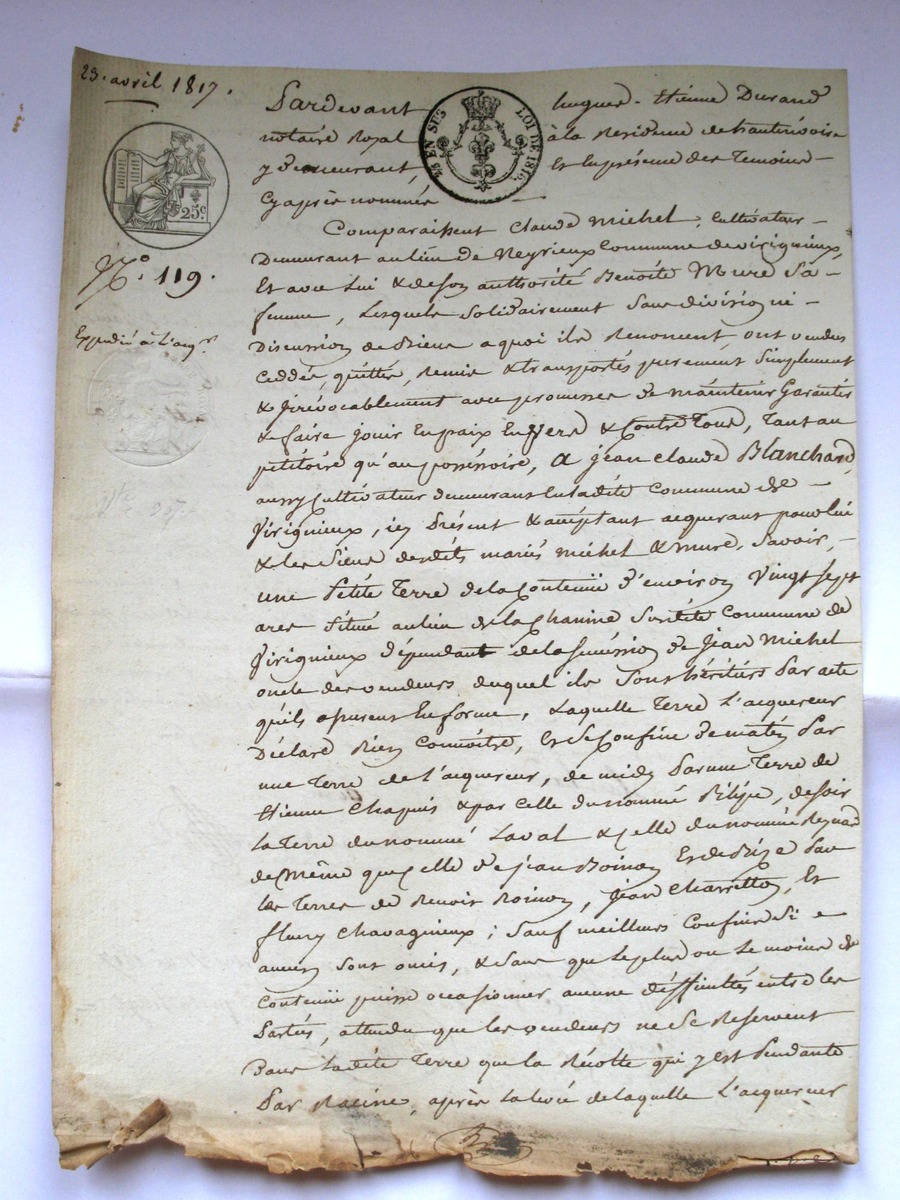 23. avril 1817.
25c
EN SUS
LOI DE 1816
No. 119.
Expédié à L'acqr.
Pardevant hugues-Etienne Durand
notaire Royal à la Residence de hauterivoire
y Demeurant, Et En présence des Temoins
Cy après nommés
Comparaissent Claude Michel, Cultivateur
Demeurant au lieu de Meyrieux Commune de virigneux,
Et avec Lui & de son authorité Benoite Mure Sa
femme, Lesquels Solidairement Sans division ni
Discussion de Biens a quoi ils Renoncent, ont vendus
Ceddés, quittés, Remis & transportés purement Simplement
& irrévocablement avec promesse de maintenir Garantir
& faire jouir En paix Envers & Contre Tous, Tant au
petitoire qu'au possessoire, A jean claude Blanchard,
aussy Cultivateur demeurant En ladite Commune de
Virigneux, ici Présent & acceptant acquerant pour lui
& les Siens desdits mariés michel & mure, Savoir,
une Petite Terre de la Contenue d'environ Vingt Sept
ares Située au lieu de la Chanine Susdite Commune de
Virigneux dépendant de la Succession de Jean Michel
oncle des vendeurs duquel ils Sont héritiers Par acte
qu'ils assurent En forme, Laquelle Terre L'acquereur
Déclare Bien Connoitre, Et Se Confine de matin Par
une Terre de L'acquereur, de midy Par une Terre de
Etienne Chapuis & par Celle du nommé Pilipe, de soir
La Terre du nommé Laval & Celle du nommé
de même que Celle de jean Boinon Et de Bize Par
les Terres de Benoit Boinon, Jean Charretton, Et
fleury Chavagneux; Sauf meilleurs Confins Si
aucuns Sont omis, & Sans que Le plus ou Le moins de
Contenue puisse occasionner aucune difficultés entre les
Parties, attendu que les vendeurs ne Se Reservent
Dans Ladite Terre que la Récolte qui y est Pendante
Par Racines, après La levée de laquelle L'acquereur